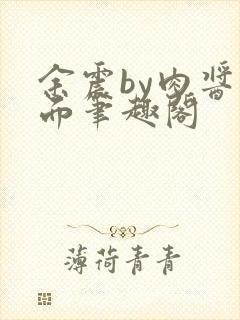 余震by肉酱
而笔趣阁
薄荷青青